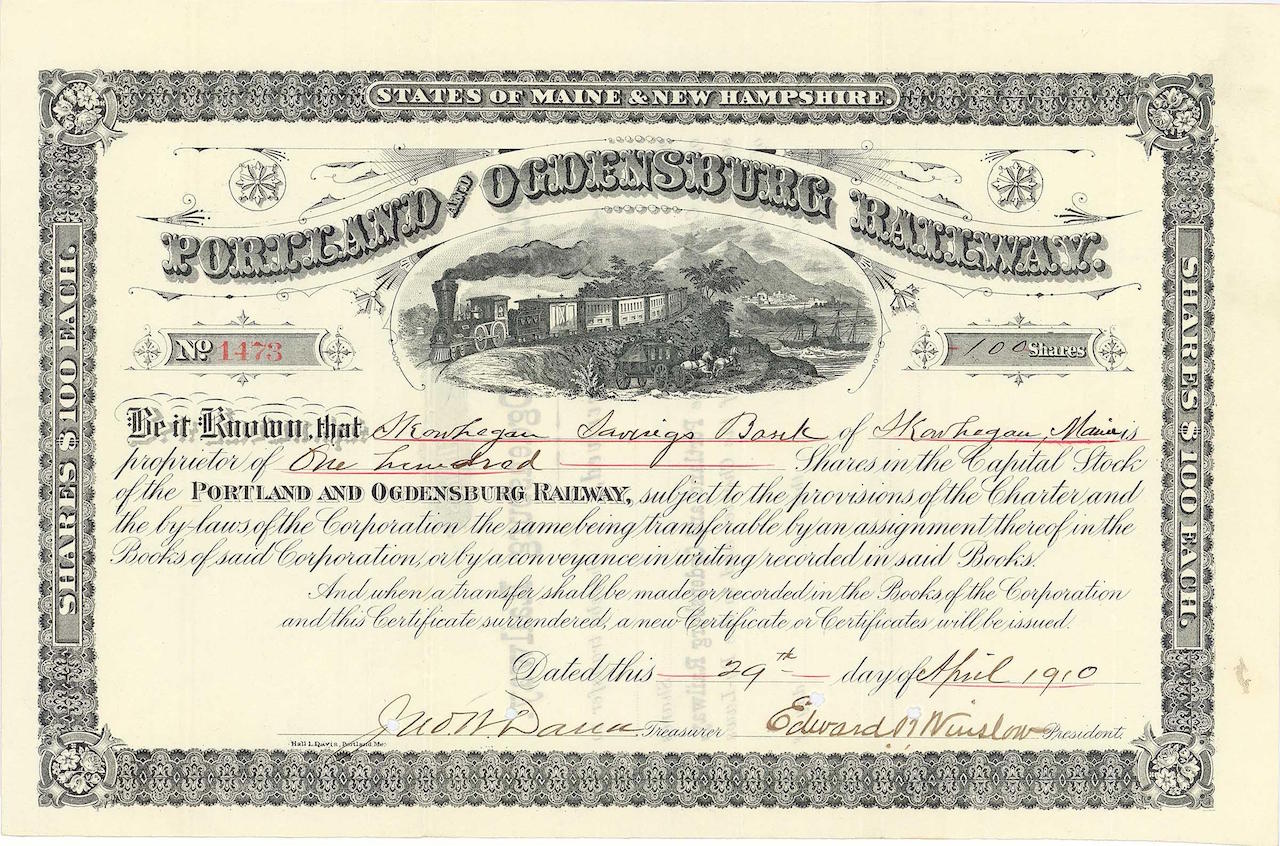 STATES OF MAINE & NEW HAMPSHIRE.
PORTLAND AND OGDENSBURG RAILWAY.
SHARES $100 EACH.
SHARES $100 EACH.
No 1473
100 Shares
Be it Known, that Skowhegan Savings Bank of Skowhegan, Maine is
proprietor of One hundred Shares in the Capital Stock
of the PORTLAND AND OGDENSBURG RAILWAY, subject to the provisions of the Charter and
the by-laws of the Corporation the same being transferable by an assignment thereof in the
Books of said Corporation, or by a conveyance in writing recorded in said Books.
And when a transfer shall be made or recorded in the Books of the Corporation
and this Certificate surrendered, a new Certificate or Certificates will be issued.
Dated this 29th day of April 1910
Jno. W. Dana Treasurer Edward B. Winslow President.
Hall L. Davis, Portland, Me.